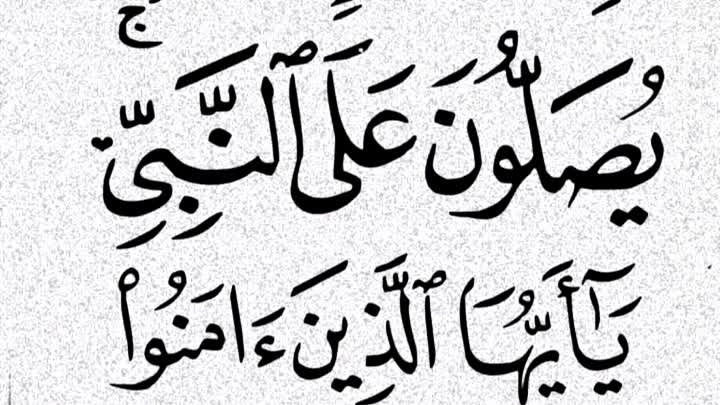 يُصَلُّونَ عَلَى ٱلنَّبِىِّۚ
يَـٰٓأَيُّهَا ٱلَّذِينَ ءَامَنُوا۟